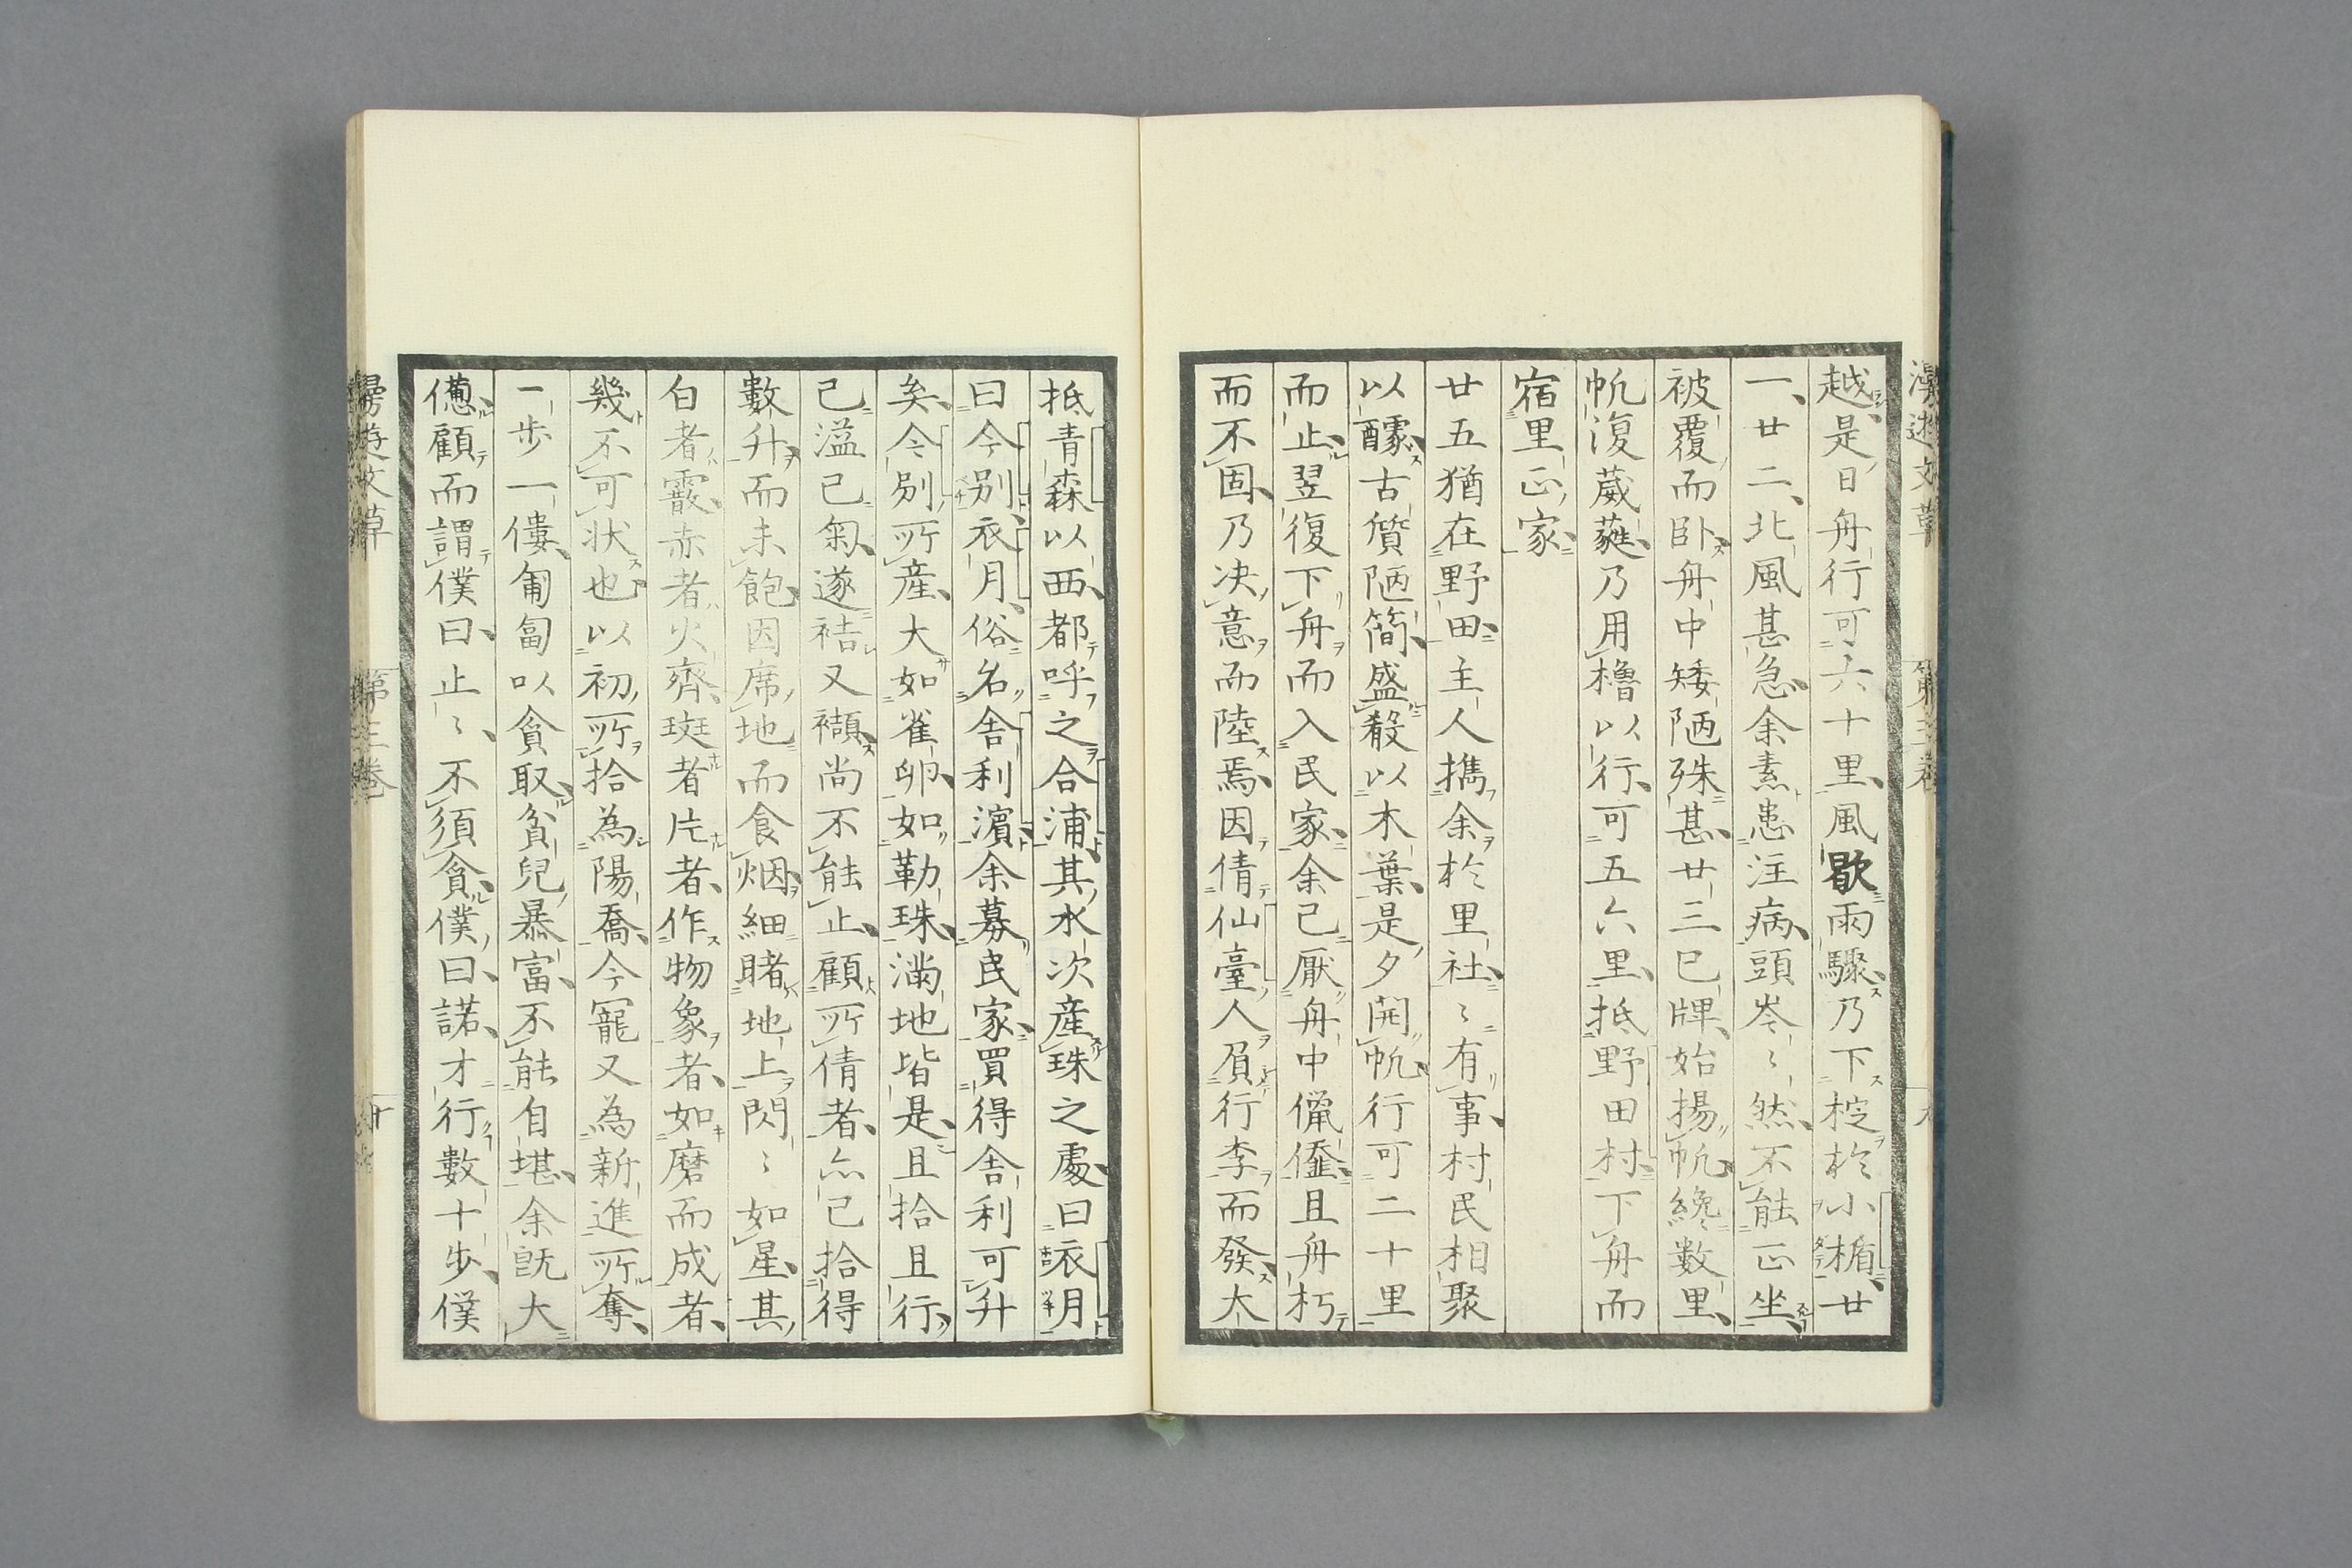 越是日舟行可六十里風歇雨驟乃下椗於小楯廿
一廿二北風甚急余素患注病頭岑〻然不能正坐
被覆而臥舟中矮陋殊甚廿三巳牌始揚帆纔数里
帆復葳蕤乃用櫓以行可五六里抵野田村下舟而
宿里正家
廿五猶在野田主人携余於里社〻有事村民相聚
以醵古質陋簡盛殽以木葉是夕開帆行可二十里
而止翌復下舟而入民家余已厭舟中儠𠐿且舟朽
而不固乃决意而陸焉因倩仙臺人負行李而發大
抵青森以西都呼之合浦其水次産珠之處曰衣月
曰今別衣月俗名舎利濵余募民家買得舎利可升
矣今別所産大如雀卵如勒珠満地皆是且拾且行
已溢已氣遂袺又襭尚不能止顧所倩者亦已拾得
數升而未飽因席地而食烟細睹地上閃〻如星其
白者霰赤者火齊斑者片者作物象者如磨而成者
幾不可状也以初所拾為陽喬今寵又為新進所奪
一歩一僂匍匐以貪取貧兒暴富不能自堪余既大
憊顧而謂僕曰止〻不須貪僕曰諾才行數十歩僕
漫遊文草 第三卷 九
漫遊文草 第三卷 十